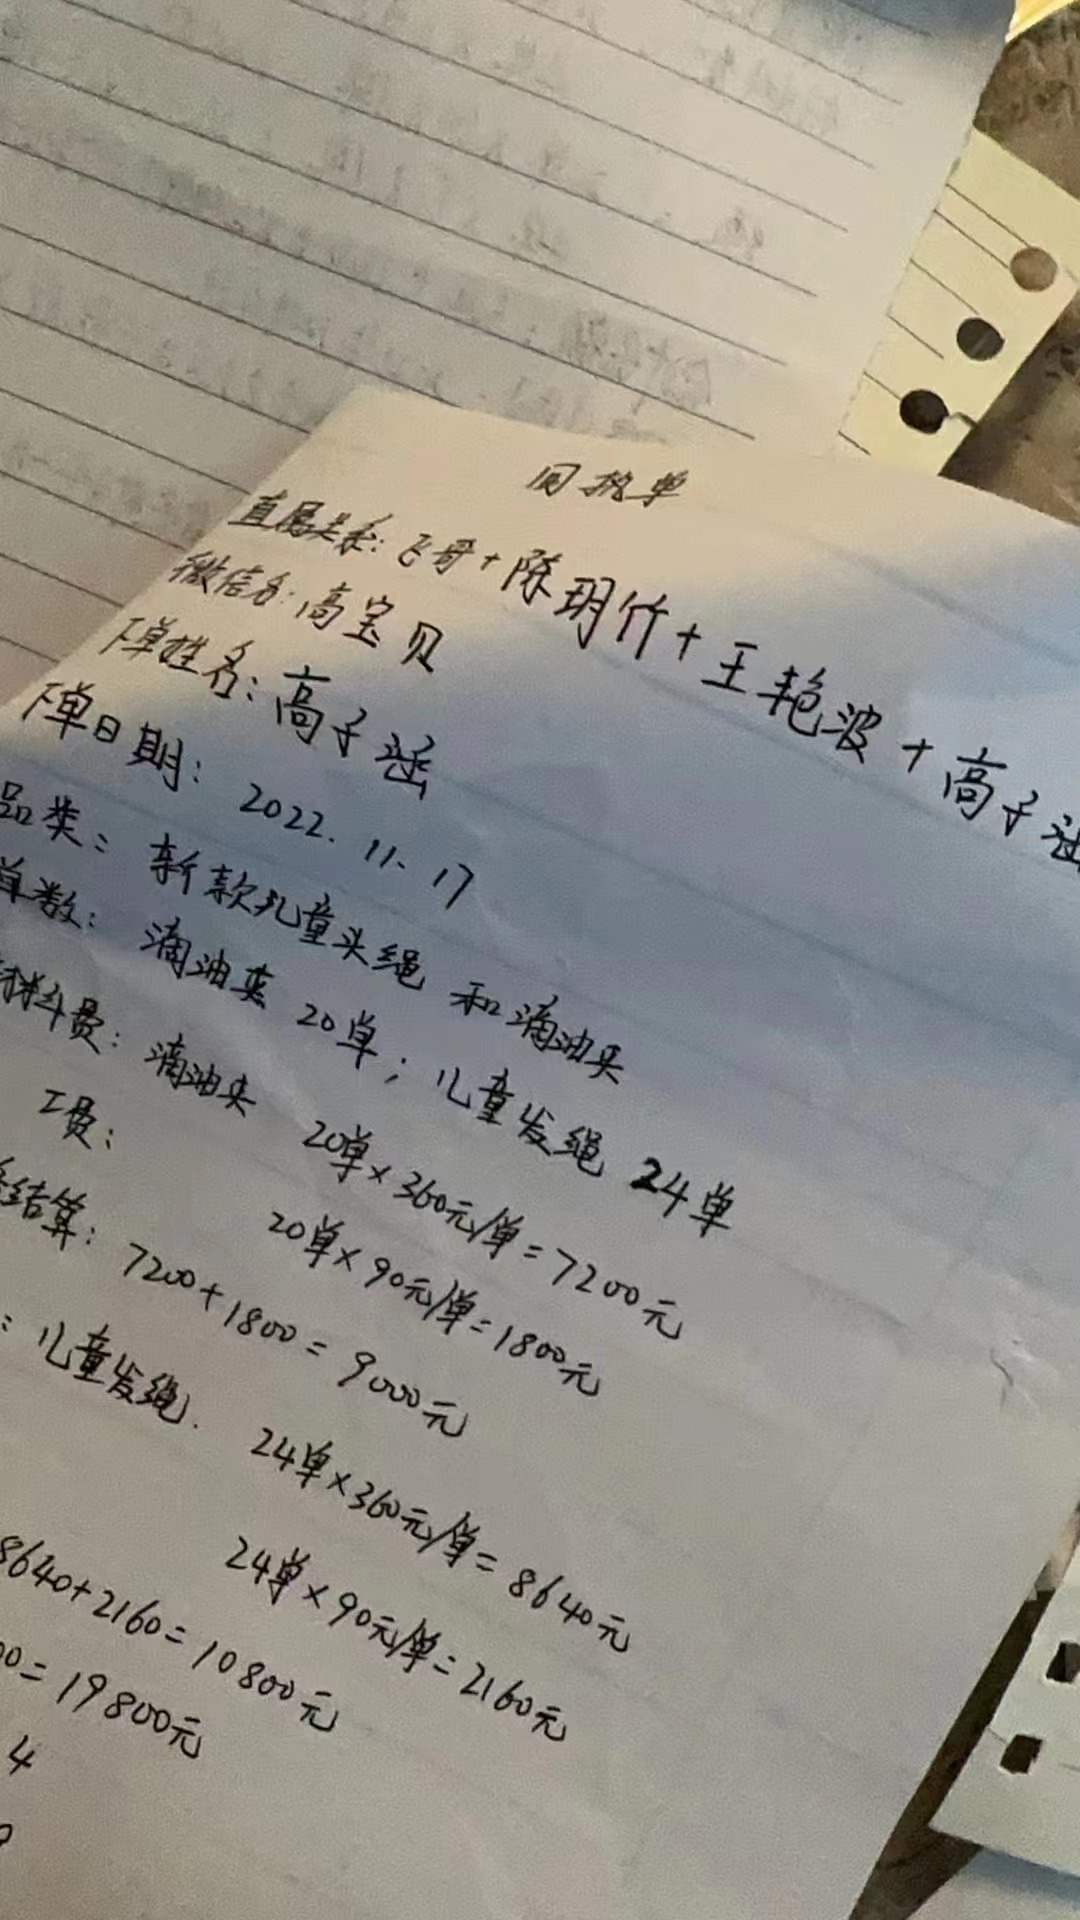 回执单
直属关系：飞哥+陈玥仟+王艳波+高子涵
微信名：高宝贝
下单姓名：高子涵
下单日期：2022.11.17
品类：新款儿童头绳 和滴油夹
单数：滴油夹 20单；儿童发绳 24单
材料费：滴油夹 20单×360元/单=7200元
工费： 20单×90元/单=1800元
结算：7200+1800=9000元
：儿童发绳. 24单×360元/单=8640元
24单×90元/单=2160元
8640+2160=10800元
00=19800元
4